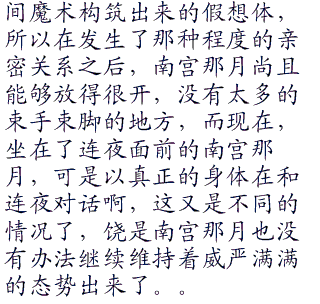 间魔术构筑出来的假想体，
所以在发生了那种程度的亲
密关系之后，南宫那月尚且
能够放得很开，没有太多的
束手束脚的地方，而现在，
坐在了连夜面前的南宫那
月，可是以真正的身体在和
连夜对话啊，这又是不同的
情况了，饶是南宫那月也没
有办法继续维持着威严满满
的态势出来了。。